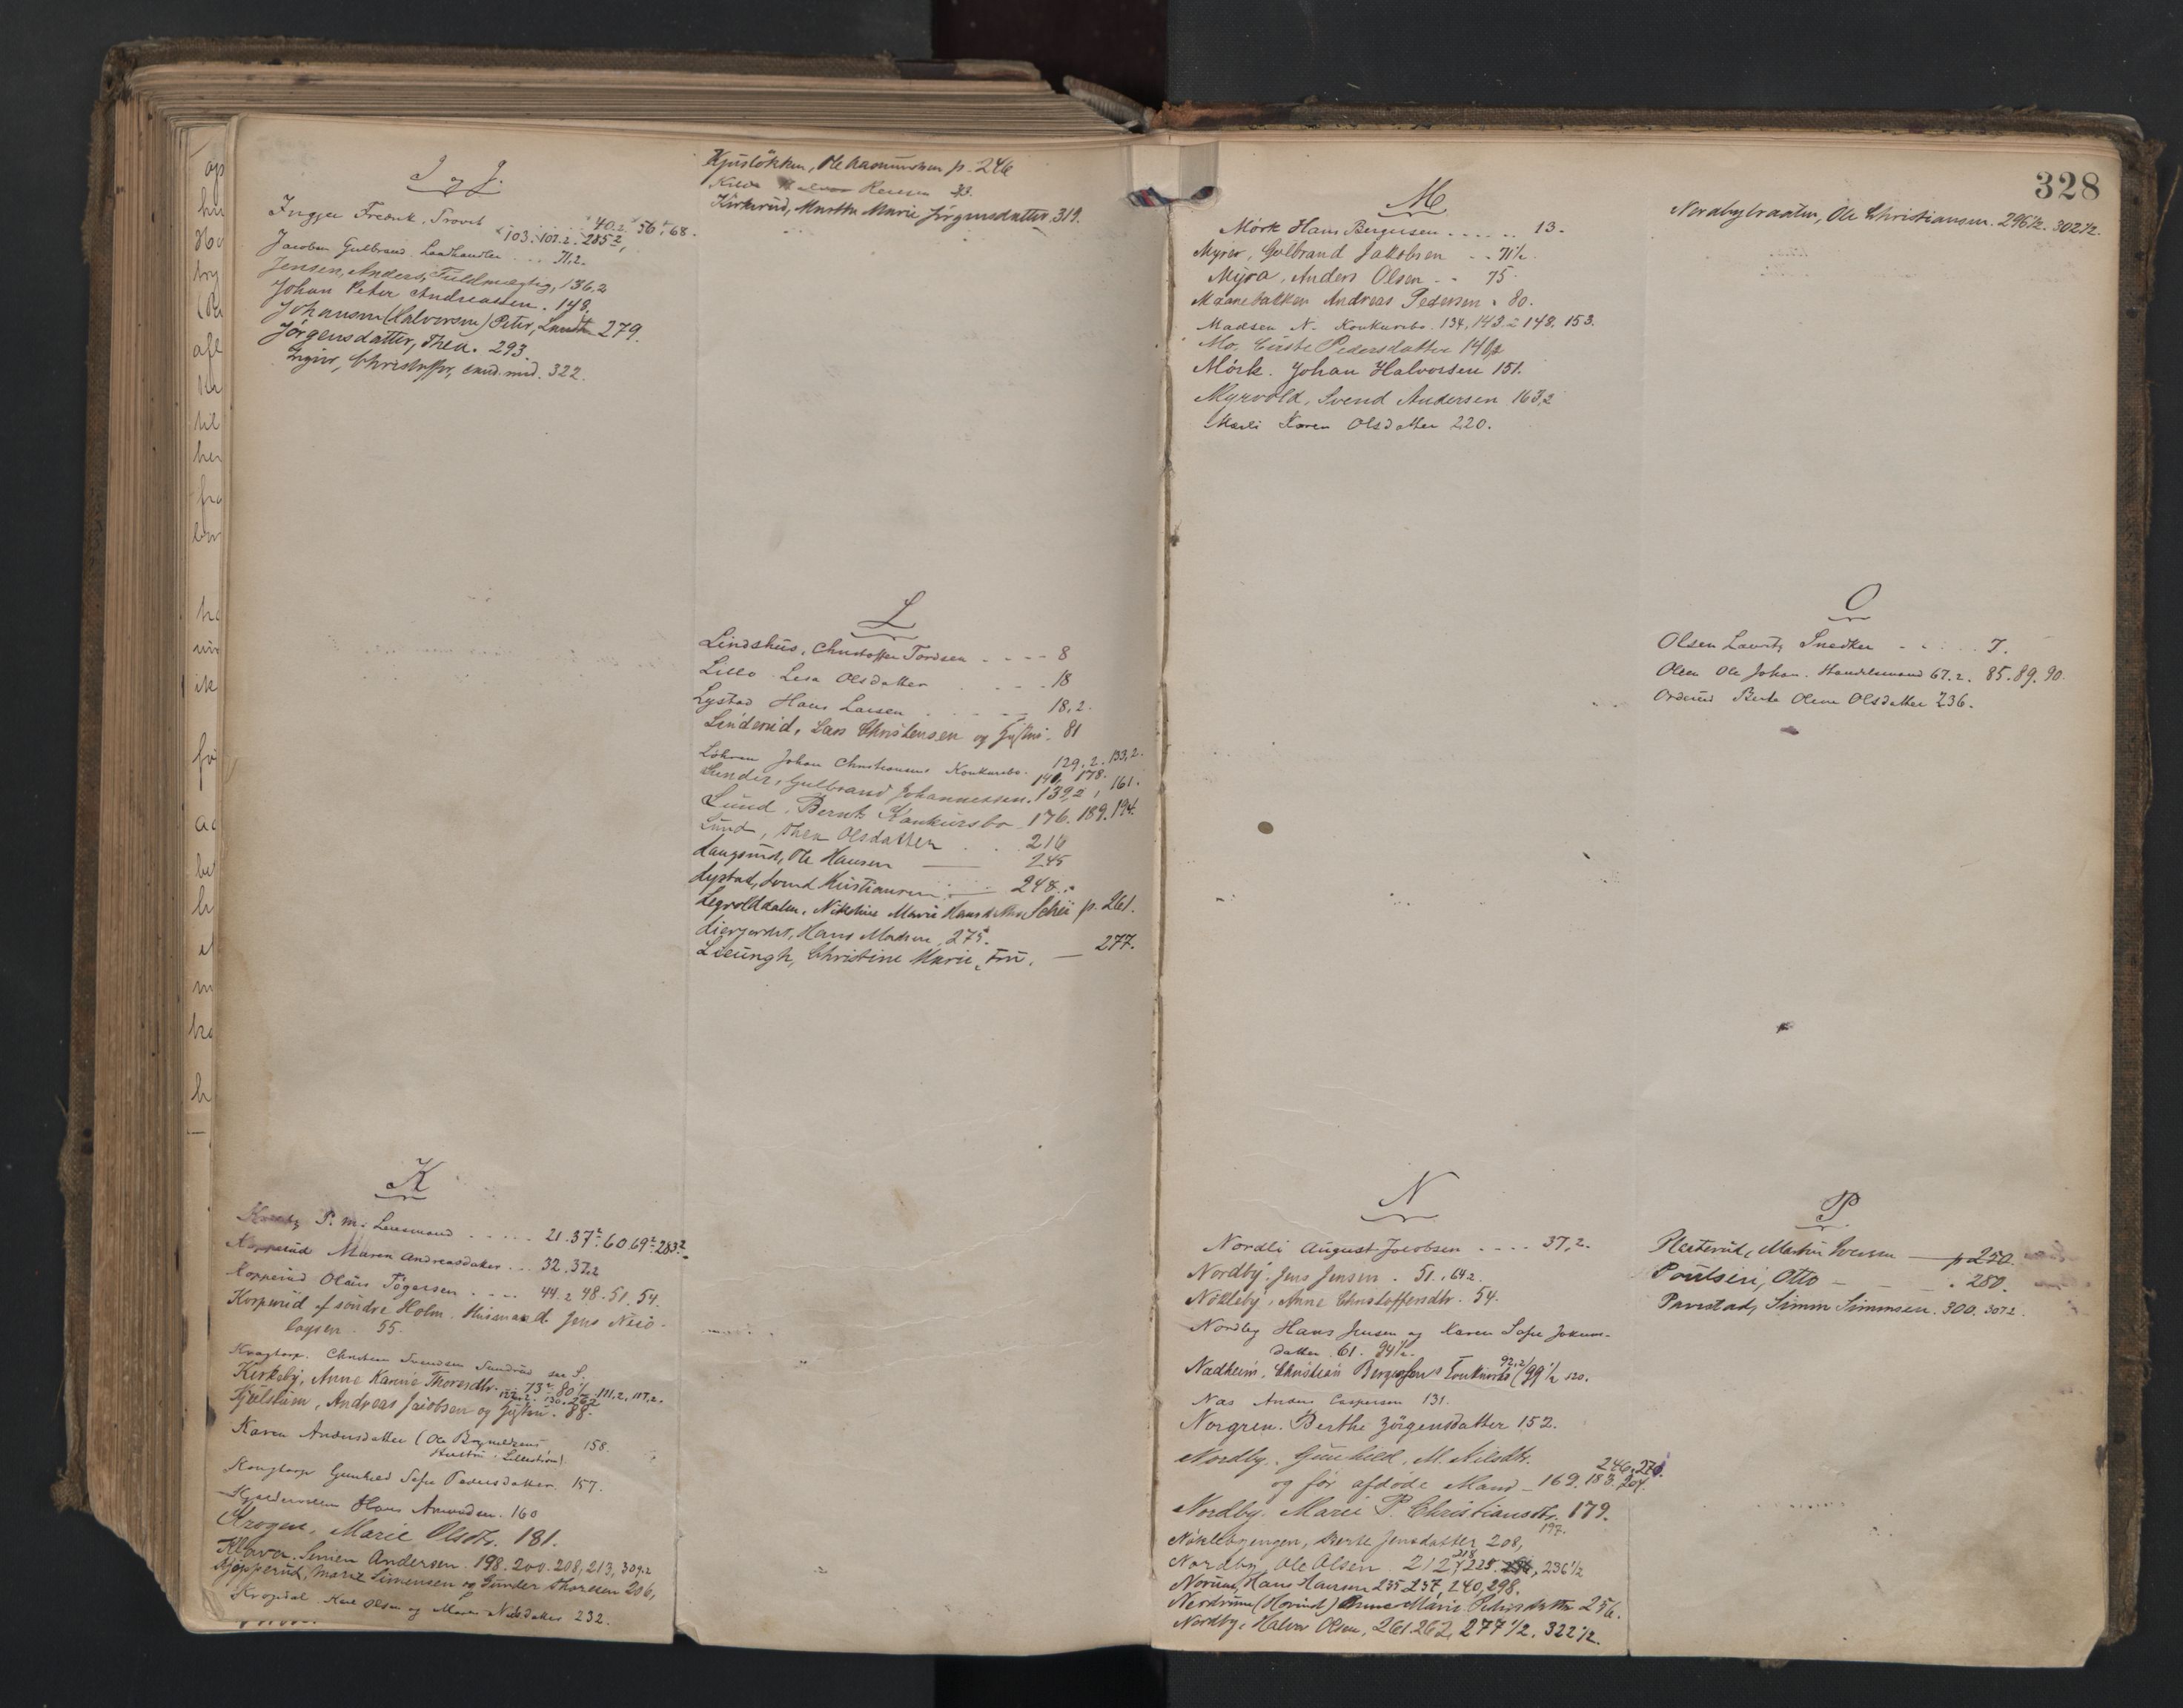 I og J.
Fredrik, Provst 40.2. 56. 68.
103. 107.2. 285 2,
Jacobsen Gulbrand Landhandler 71,2.
Jensen, Anders, Fuldmægtig, 136,2
Johan Peter Andreassen. 148.
Johansen (Halvorsen) Peter, 279.
Jörgensdatter, Thea. 293.
Christoffer, 322.
K
P. M. Lensmand 21. 37 2. 60. 69 2. 283 2.
Kopperud Maren Andreasdatter 32, 37,2
Kopperud Olaus Tögersen 44.2 48. 51. 54.
Korperud af söndre Holm. Husmand Jens Nico-
laysen. 55.
Krogtorp. Christian Svendsen Sundrud see S.
Kirkeby, Anne Karine Thoresdtr. 73 2. 80 1/2 111.2, 117,2.
122.2. 130. 262
Kjölstum, Andreas Jacobsen og Hustru. 88.
Karen Andersdatter (Ole Brynildsens 158.
Hustru: Lilleström)
Gunhild Sofie Pedersdatter. 157.
Hans Amundsen. 160
Krogen, Marie Olsdtr. 181.
Klava. Simen Andersen. 198. 200. 208, 213, 309.2
Kjöpperud, Marie Simensen og Gunder Thoresen 206,
Krogdal. Karl Olsen og Maren Nilsdatter 232.
Kjuslökken, Ole Rasmussen p. 246
Kirkerud, Marthe Marie Jörgensdatter 319.
L
Lindshus, Christoffer Tordsen 8
Lillo Lisa Olsdatter 18
Lystad Hans Larsen 18,2.
Linderud, Lars Christensen og Hustru. 81
Löhren Johan Christiansens Konkursbo. 129.2. 133,2.
140, 178.
Lunder, Gulbrand Johannessen. 139,2, 161.
Lund, Bernt, Konkursbo 176. 189. 194.
Lund, Thea Olsdatter 216
Langsrud, Ole Hansen 245
Lystad, Svend Kristiansen 248.
Nikoline Marie Hansdatter Schei p. 261.
Lierjordet, Hans Madsen, 275.
Lieungh, Christine Marie, Fru. 277.
328
M
Mörk Hans Bergersen 13.
Myrer, Gulbrand Jakobsen 71 1/2.
Myra, Anders Olsen 75
Maanebakken Andreas Pedersen 80.
Madsen N. Konkursbo. 134, 143.2 148. 153.
Mo, Pedersdatter 146,2
Mörk. Johan Halvorsen 151.
Myrvold, Svend Andersen 163,2
Mærli Karen Olsdatter 220.
N
Nordli August Jacobsen 37,2.
Nordby. Jens Jensen. 51., 64 2.
Nökleby, Anne Christoffersdtr. 54.
Nordby Hans Jensen og Karen Sofie Jokum-
datter. 61. 94 1/2.
Nadheim, Christian Bergersens Konkursbo (92,2) 99 1/2 120.
Næs Anders Caspersen 131.
Norgren. Berthe Jörgensdatter 152.
Nordby. Gunhild, M. Nilsdtr. 246, 270.
og før afdöde Mand 169. 183. 204.
Nordby. Marie P. Christiansdtr. 179.
197.
Nöklebyengen, Berte Jensdatter 208,
Nordby, Ole Olsen 212, 218 225. , 236 1/2
Norum, Hans Hansen 235 237, 240, 298.
Nerdrum (Hovind) Anne Marie Pedersdatter 256.
Nordby, Halvor Olsen, 261. 262, 277 1/2. 322 1/2.
Nordbybraaten, Ole Christiansen. 296 1/2. 302 1/2.
O
Olsen Lauritz Snedker 7.
Olsen Ole Johan. Handelsmand 67.2. 85. 89. 90.
Ordrud Berte Olene Olsdatter 236.
P
Platerud, Martin Iversen p 250.
Poulsen, Otto 280.
Simen Simensen. 300. 307 2.